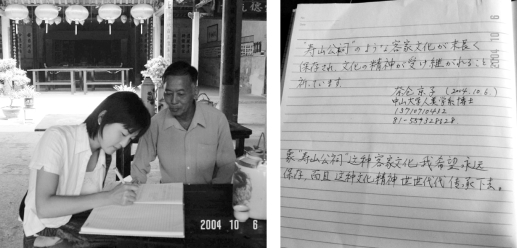 2004 10 6
"寿山公祠"のような客家文化が末長く
保存され、文化の精神が受け継がれることを
祈っています。
京子 (2004.10.6)
中山大学人类学系博士
13710710412
81-559328128
象"寿山公祠"这种客家文化,我希望永远
保存,而且这种文化精神世世代代传承下去。
2004 10 6